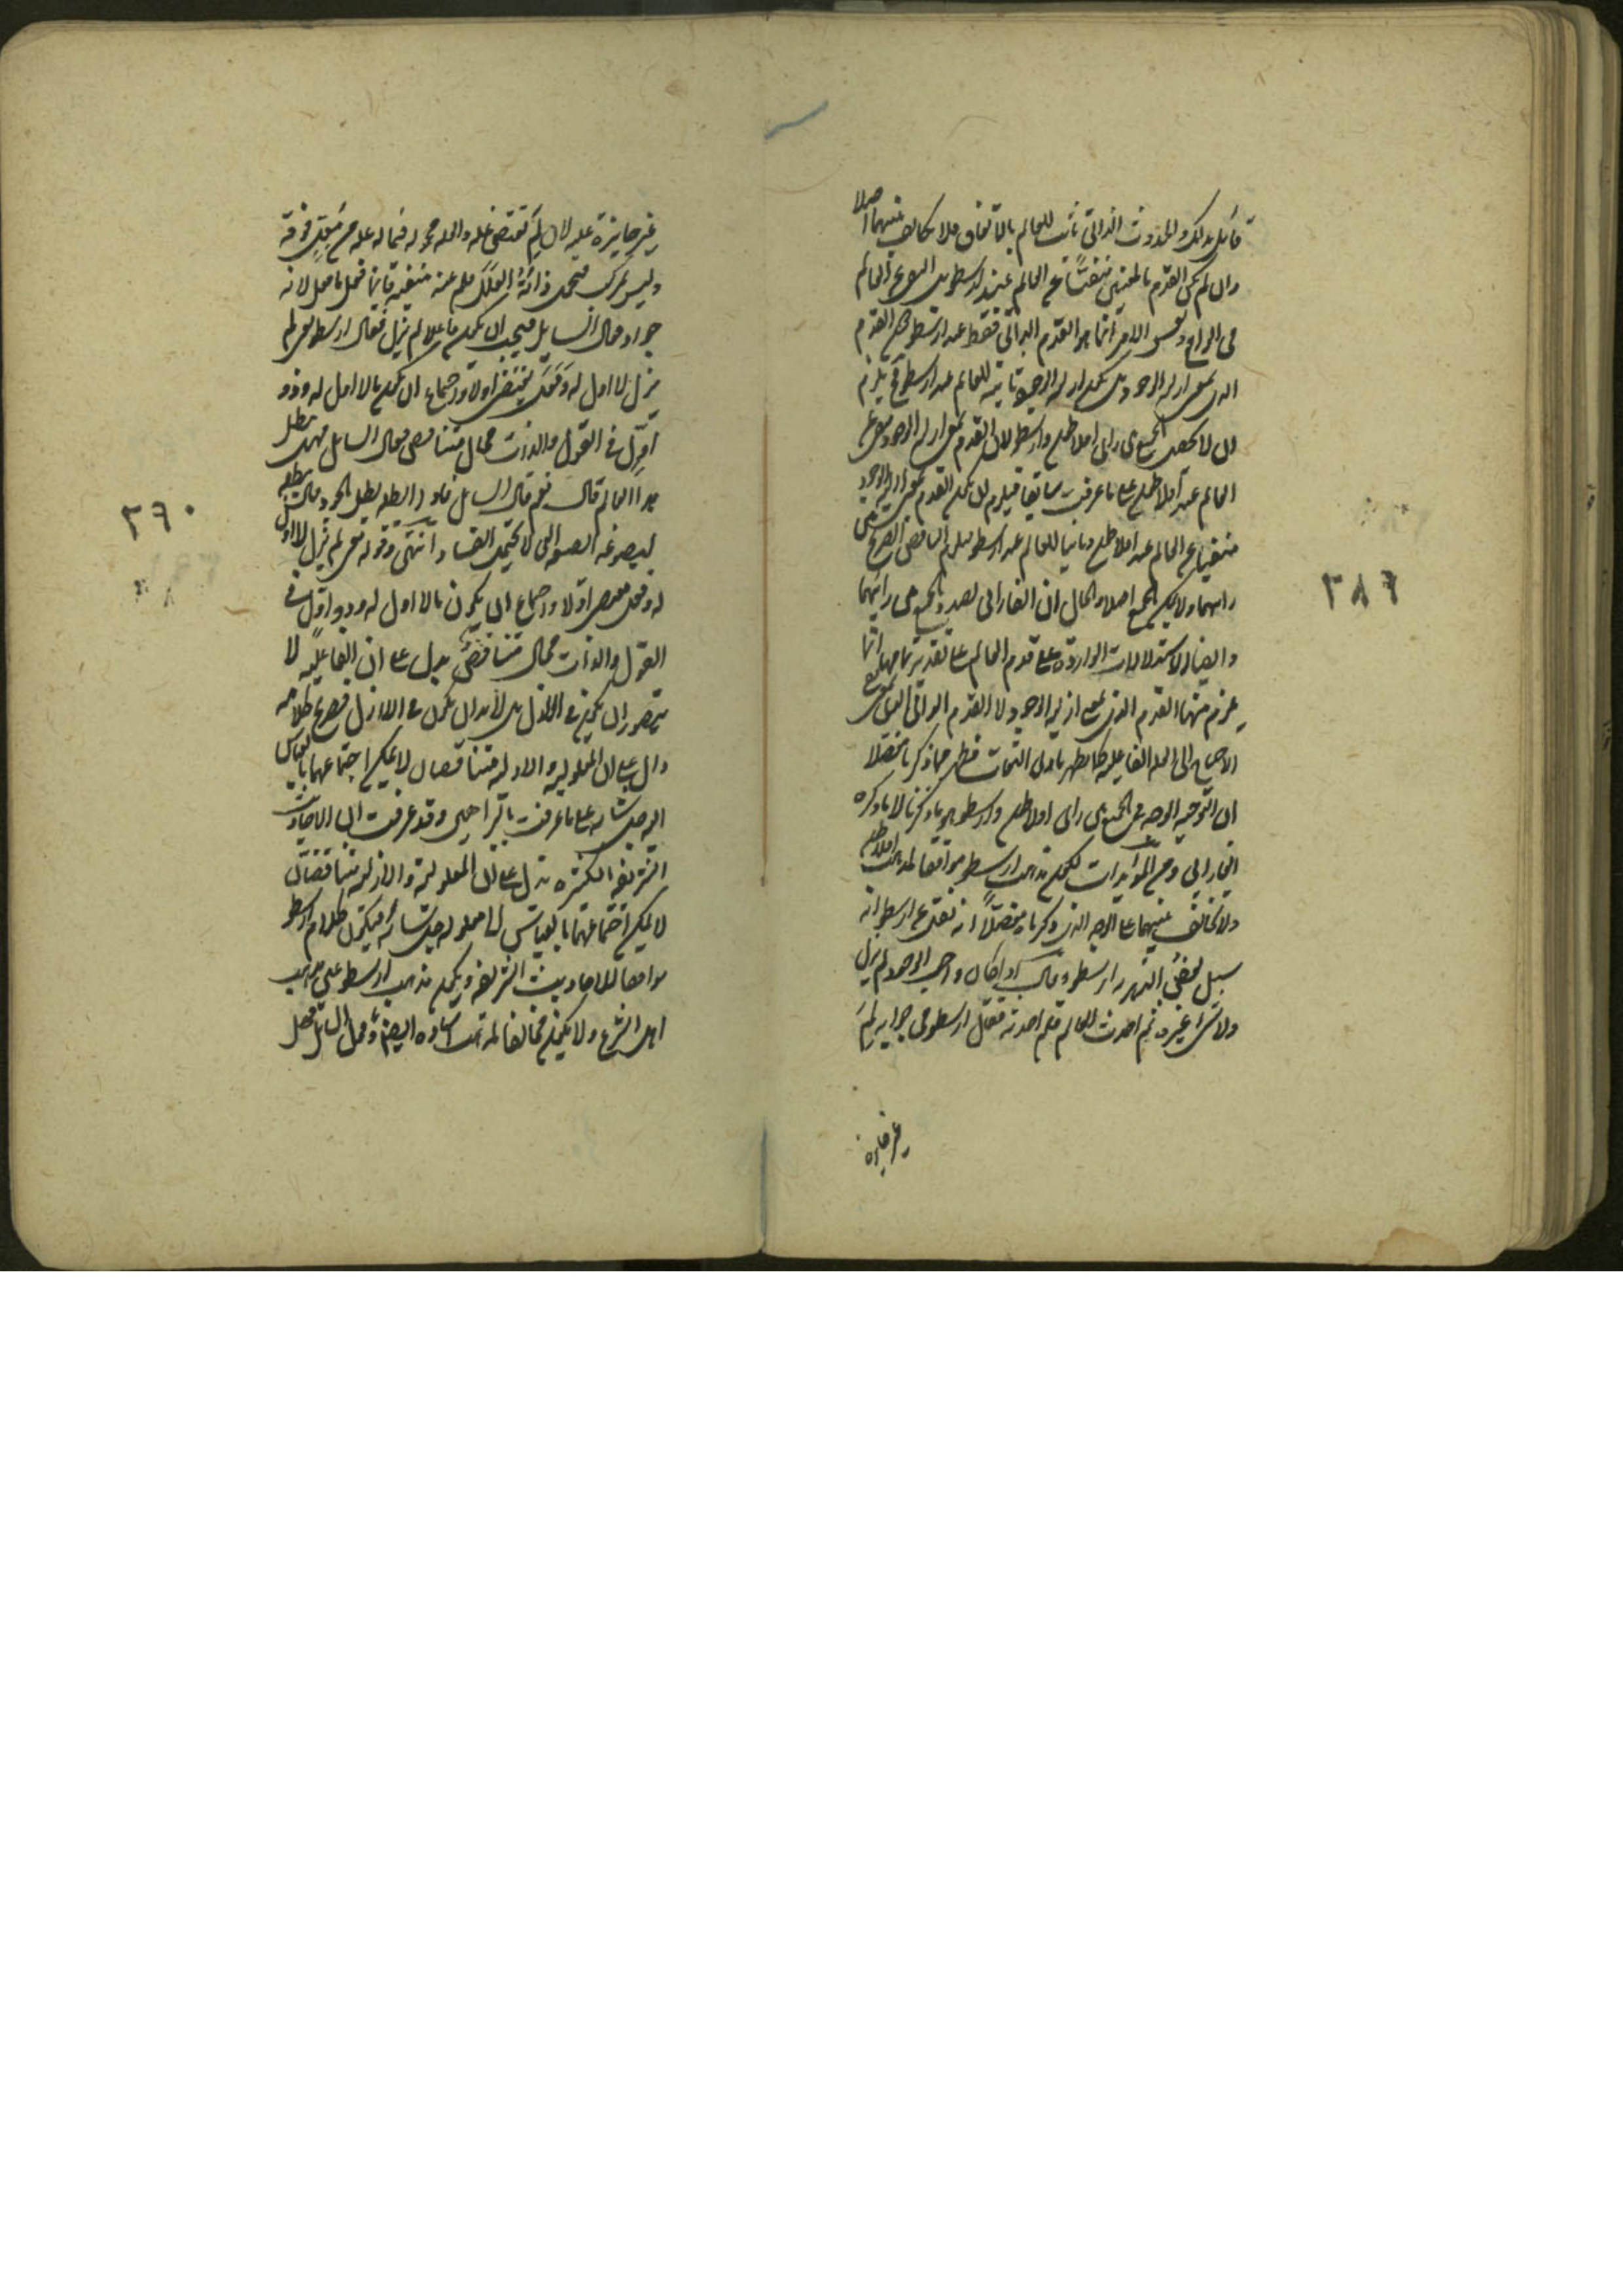 قائل بذلك والحدوث الذاتي ثابت للعالم بالاتفاق فلا تخالف بينهما اصلا
وان لم يكن القدم بالمعنيين منفيا عن العالم عند ارسطو بل المنفي عن العالم
في الواقع ونفس الامر انما هو القدم الذاتي فقط عند ارسطو
الوجود للعالم عند ارسطو يلزم
ان لا يحصل الجمع بين رأى افلاطن وارسطو لان القدم بمعنى ازلية الوجود منفي عن
العالم عند افلاطن على ما عرفت سابقا فيلزم ان يكون القدم بمعنى ازلية الوجود
منفيا عن العالم عند افلاطن وثابتا للعالم عند ارسطو فيلزم التناقض الصريح بين
رأيهما ولا يمكن الجمع اصلا والحال ان الفارابي بصدد الجمع بين رأيهما
وايضا الاستدلالات الواردة على قدم العالم على تقدير تمامها انما
يلزم منها القدم الذي بمعنى ازلية الوجود لا القدم الذاتي الذي بمعنى
الاحتياج الى العلة الفاعلية كما يظهر فظهر مما ذكرنا مفصلا
ان التوجيه الوجه في الجمع بين رأى افلاطن وارسطو هو ما ذكرنا لا ما ذكره
الفارابي ومن المؤيدات لكون مذهب ارسطو موافقا لمذهب افلاطن
ولا تخالف بينهما على الوجه الذي ذكرنا مفصلا انه نقل عن ارسطو انه
سئل بعض الدهرية ارسطو وقال اذا كان واجب الوجود لم يزل
ولا شئ غيره ثم احدث العالم فلم احدثه فقال ارسطو في جوابه لم
غير جايزة
٣٨٩
غير جايزة عليه لان لم تقتضى علة والعلة محمولة فيما له علة من معل فوقه
وليس بمركب فتحمل ذاته العلل فلم عنه منفية فانما فعل ما فعل لانه
جواد فقال السائل فيجب ان يكون فاعلا لم يزل فقال ارسطو معنى لم
يزل لا اول له وفعل يقتضى اولا واجتماع ان يكون ما لا اول له وذو
اول في القول والذات محال متناقض فقال السائل فهل يبطل
هذا العالم قال نعم قال السائل فاذا ابطله بطل الجود قال يبطله
ليصوغه الصيغة التي لا تحتمل الفساد انتهى وقوله معنى لم يزل لا اول
له وفعل يقتضى اولا واجتماع ان يكون ما لا اول له وذو اول في
القول والذات محال متناقض يدل على ان الفاعلية لا
يتصور ان يكون في الازل بل لا بد ان يكون في اللا ازل فصريح كلامه
دال على ان المعلولية والازلية متناقضان لا يمكن اجتماعهما بالقياس
اليه جل شأنه على ما عرفت بالبراهين وقد عرفت ان الاحاديث
الشريفة الكثيرة تدل على ان المعلولية والازلية متناقضان
لا يمكن اجتماعهما بالقياس الى معلوله جل شأنه فيكون كلام ارسطو
موافقا للاحاديث الشريفة ويكون مذهب ارسطو عين مذهب
اهل الشرع ولا يكون مخالفا لمذهب استاده ايضا وقول السائل فهل
٣٩٠